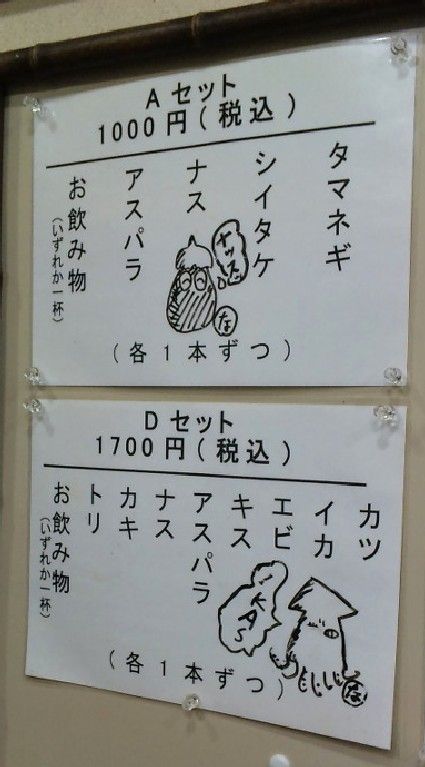 Aセット
1000円(税込)
タマネギ
シイタケ
ナス
アスパラ
お飲み物
(いずれか一杯)
ナッス
な
(各1本ずつ)
Dセット
1700円(税込)
カツ
イカ
エビ
キス
アスパラ
ナス
カキ
トリ
お飲み物
(いずれか一杯)
な
(各1本ずつ)